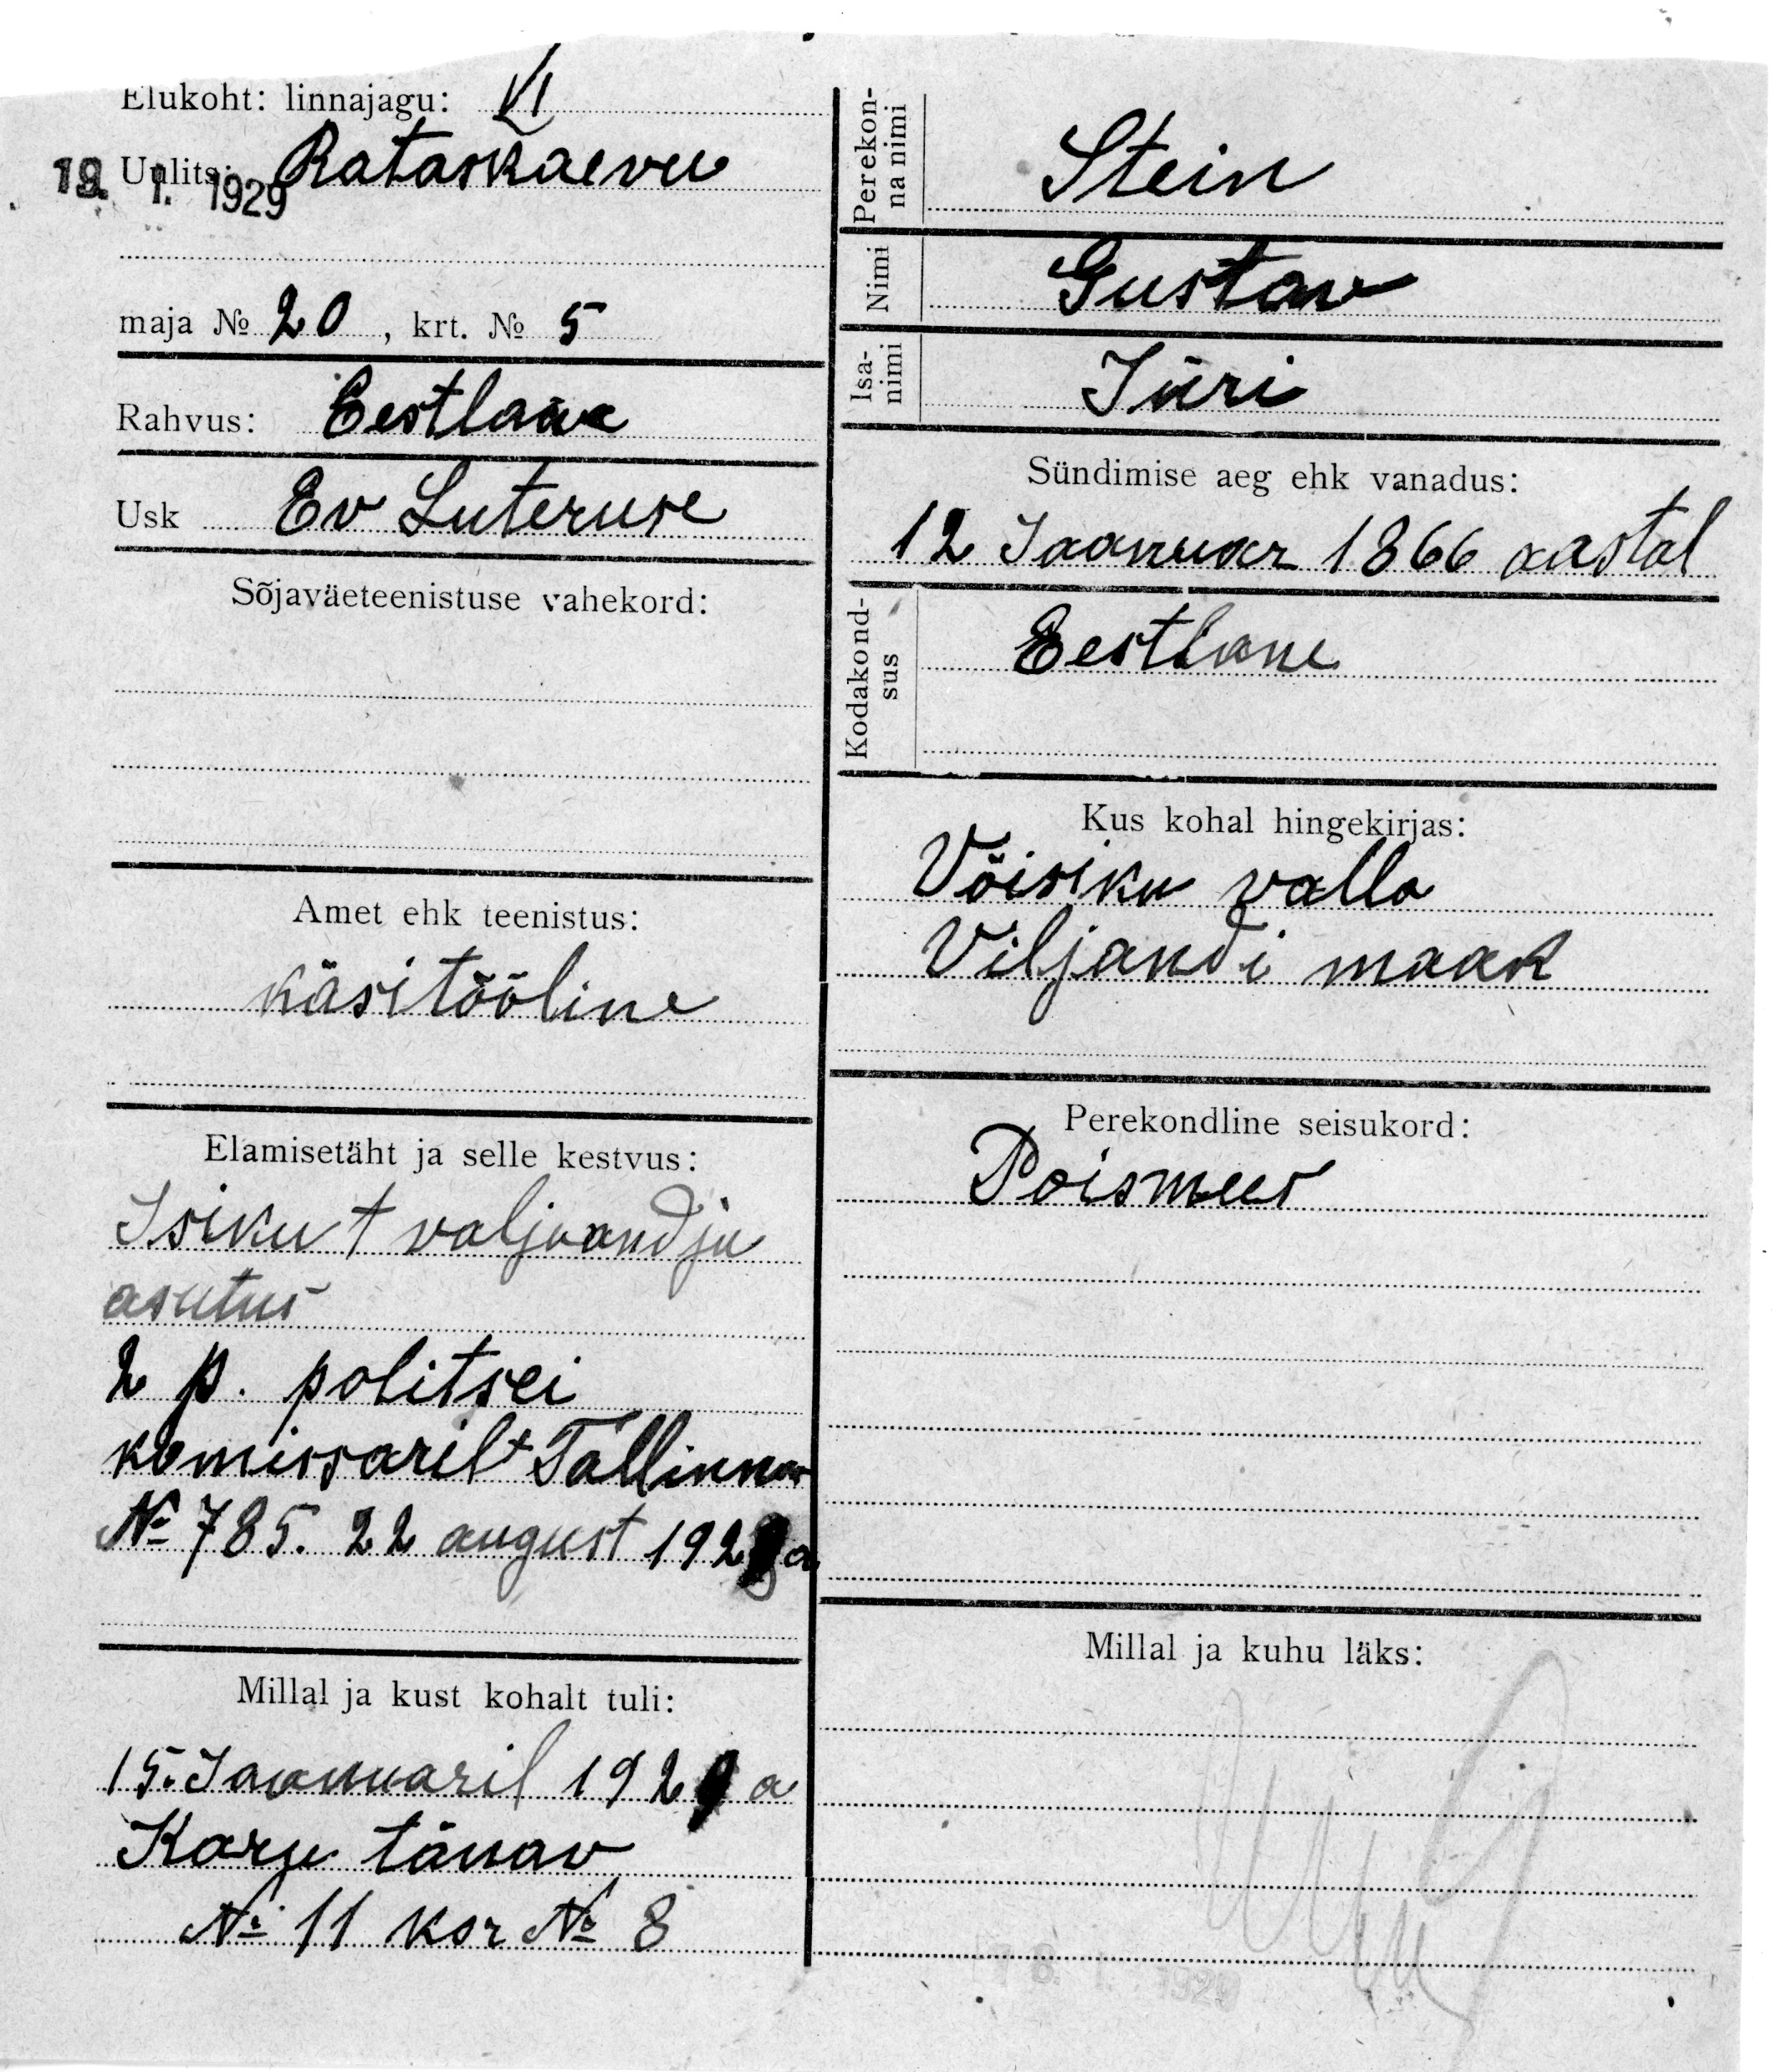 Elukoht: linnajagu: VI
Uulits: Rataskaevu
19. 1. 1929
maja № 20, krt. № 5
Rahvus: Eestlane
Usk Ev Luteruse
Sõjaväeteenistuse vahekord:
Amet ehk teenistus:
käsitööline
Elamisetäht ja selle kestvus:
Isiku t valjaandja
asutus
2 p. politsei
komissarilt Tallinnas
№ 785. 22 august 1928 a
Millal ja kust kohalt tuli:
15. Jaanuaril 1929 a
Karja tänav
№ 11 ksr № 8
Perekon-
na nimi
Stein
Nimi
Gustav
Isa-
nimi
Jüri
Sündimise aeg ehk vanadus:
12 Jaanuar 1866 aastal
Kodakond-
sus
Eestlane
Kus kohal hingekirjas:
Võisiku valla
Viljandi maak
Perekondline seisukord:
Poismees
Millal ja kuhu läks: